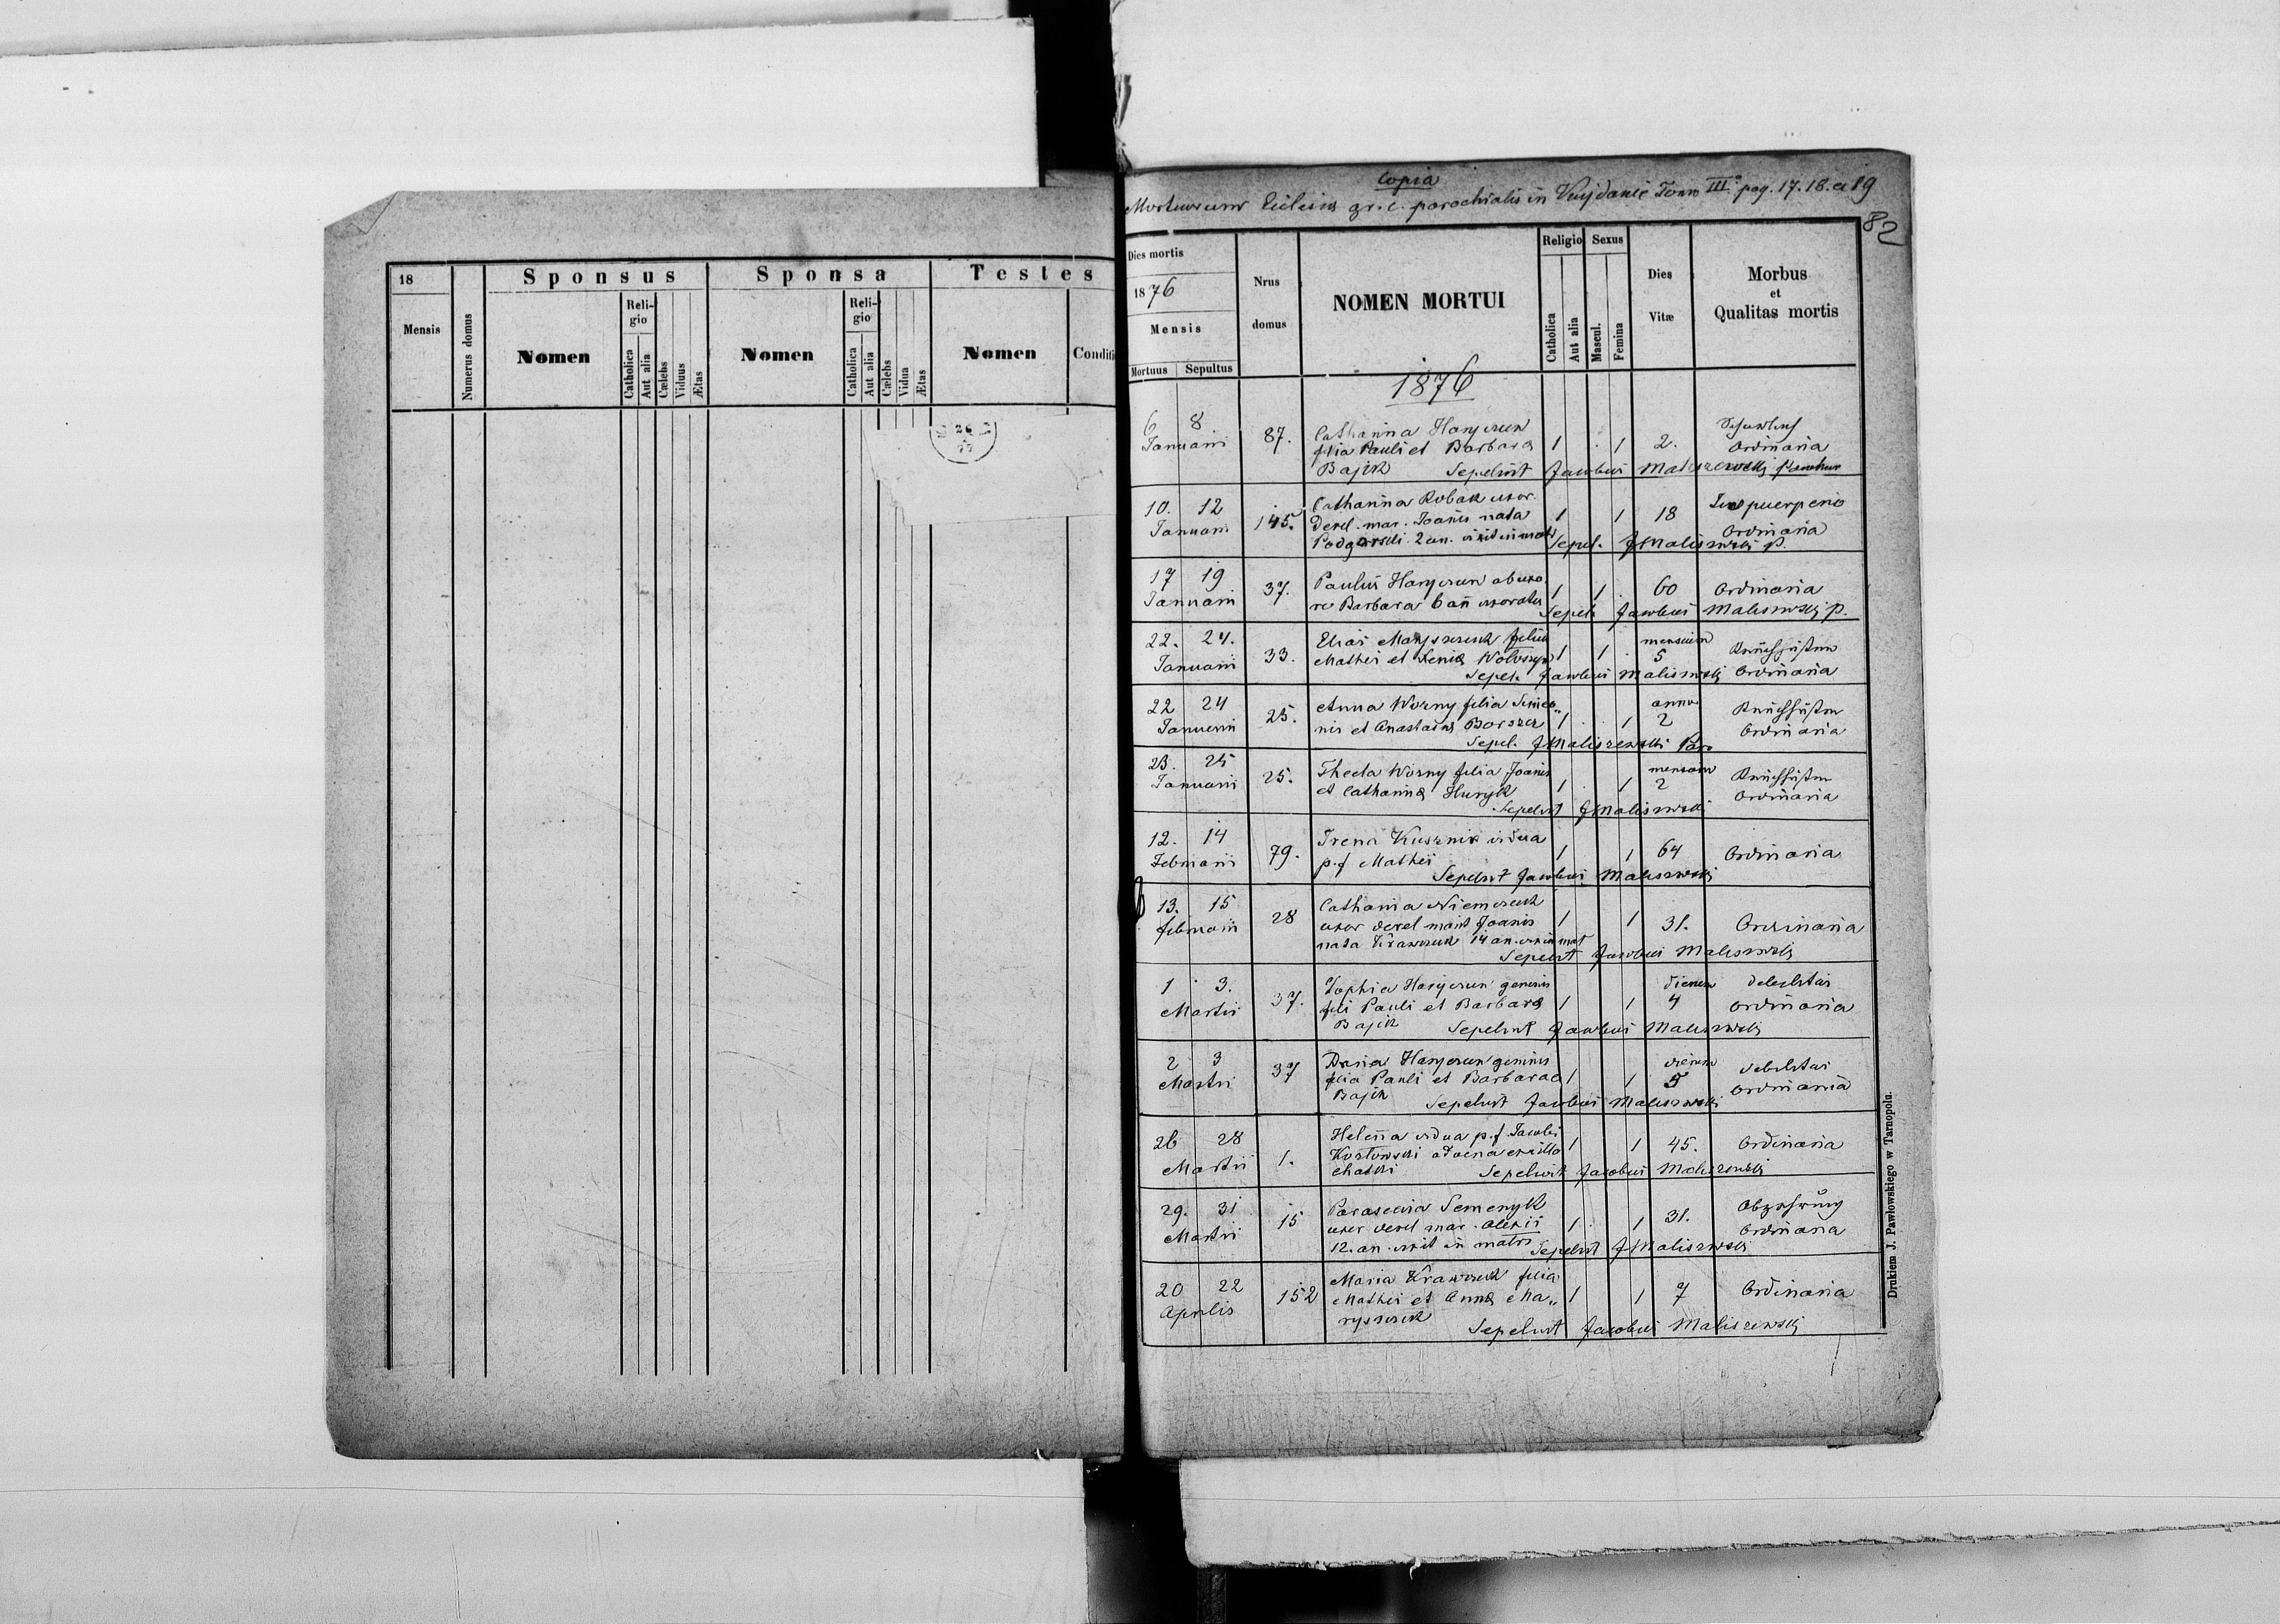 18
Mensis
Numerus domus
Sponsus
Nomen
Reli-
gio
Catholica
Aut alia
Cælebs
Viduus
Ætas
Sponsa
Nomen
Reli-
gio
Catholica
Aut alia
Cælebs
Vidua
Ætas
Testes
Nomen
Conditi
Copia
Mortuorum Eclesia gr. c. parochialis in Tomo III pag. 17. 18. et 19
82
Dies mortis
1876
Mensis
Mortuus Sepultus
Nrus
domus
NOMEN MORTUI
Religio
Catholica
Aut alia
Sexus
Mascul.
Femina
Dies
Vitæ
Morbus
et
Qualitas mortis
1876
6 8
Januarii 87. Catharina Haryczun 1 . 1 2.
filia Pauli et Barbara Ordinaria
Bajik Sepelivit Jacobus Maliszewski
10. 12 Catharina Robak uxor
Januarii 145. derel. mar. Joanis nata 1 1 18 puerperio
Podgorski 2 an. vixit in matr Ordinaria
Sepel. J Maliszewski p.
17 19 37. Paulus Haryczun ab uxo 1 1 . 60 Ordinaria
Januarii re Barbara 6 an uxoratus
Sepel. Jacobus Maliszewski p.
22. 24. 33. Elias Maryszczuk filius 1 1 . mensium
Januarii Mathei et Xenia Wołoszyn 5 Ordinaria
Sepel. Jacobus Maliszewski
22 24 25. Anna Worny filia Simeo„ 1 . . 1 annor
Januarii nis et Anastasia Borszcz 2 Ordinaria
Sepel. J Maliszewski Paro
23. 25 25. Thecla Worny filia Joanis 1 . 1 mensium
Januarii et Catharina Huryk 2 Ordinaria
Sepelivit J Maliszewski
12. 14 79. Irena Kusznir vidua 1 1 64 Ordinaria
Februarii p. f Mathei
Sepelivit Jacobus Maliszewski
13. 15 28 Catharina Niemczuk
Februarii uxor derel marit Joanis 1 1 31. Ordinaria
nata Krawczuk 14 an. vixit in mat
Sepelivit Jacobus Maliszewski
1 3. 37. Sophia Haryczun geminis dierum debilitas
Martii fili Pauli et Barbara 1 1 4 ordinaria
Bajik Sepelivit Jacobus Maliszewski
2 3 37 Daria Haryczun geminis dierum debilitas
Martii filia Pauli et Barbarae 1 1 5 ordinaria
Bajik Sepelivit Jacobus Maliszewski
26 28 1. Helena vidua p. f Jacobi 1 1 45. Ordinaria
Martii Kozłowski advena
Sepelivit Jacobus Maliszewski
29. 31 15 Parascevia Semenyk
Martii uxor derel mar. Alexii 1 . 1 31. Ordinaria
12. an. vixit in matri Sepelivit J Maliszewski
20 22 152 Maria Krawczuk filia
Aprilis Mathei et Anna Ma„ 1 1 7 Ordinaria
ryszczuk Sepelivit Jacobus Maliszewski
Drukiem J. Pawłowskiego w Tarnopolu.